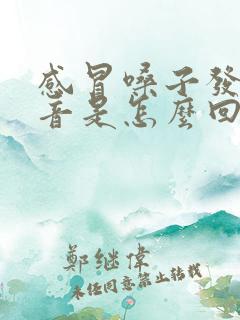 感冒嗓子發
音是怎麼回
鄭继偉
未经同意禁止转载